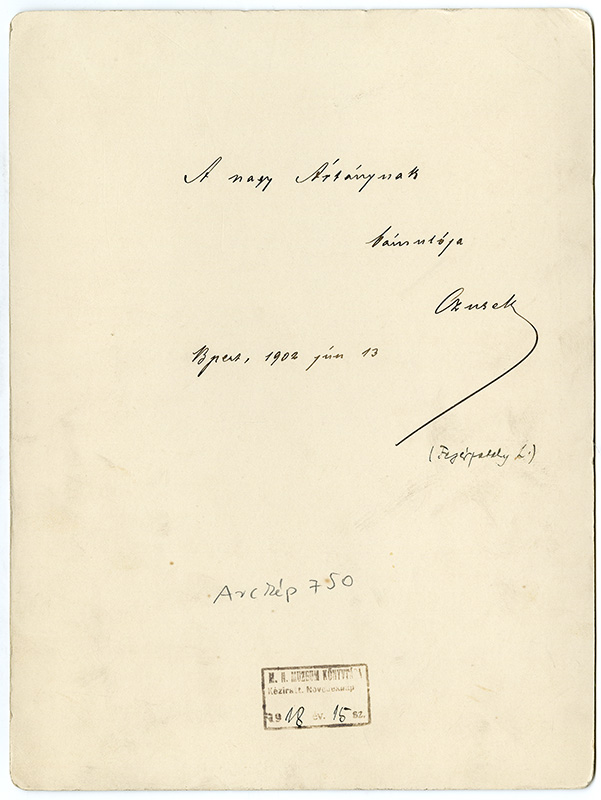 A nagy Ártánynak
bámulója
Ozurek
Bpest, 1902 jún 13
(Fejérpataky L.)
Arckép 750
M. N. MUZEUM KÖNYVTÁRA
Kéziratt. Növedéknapló
1918 év. 15 sz.